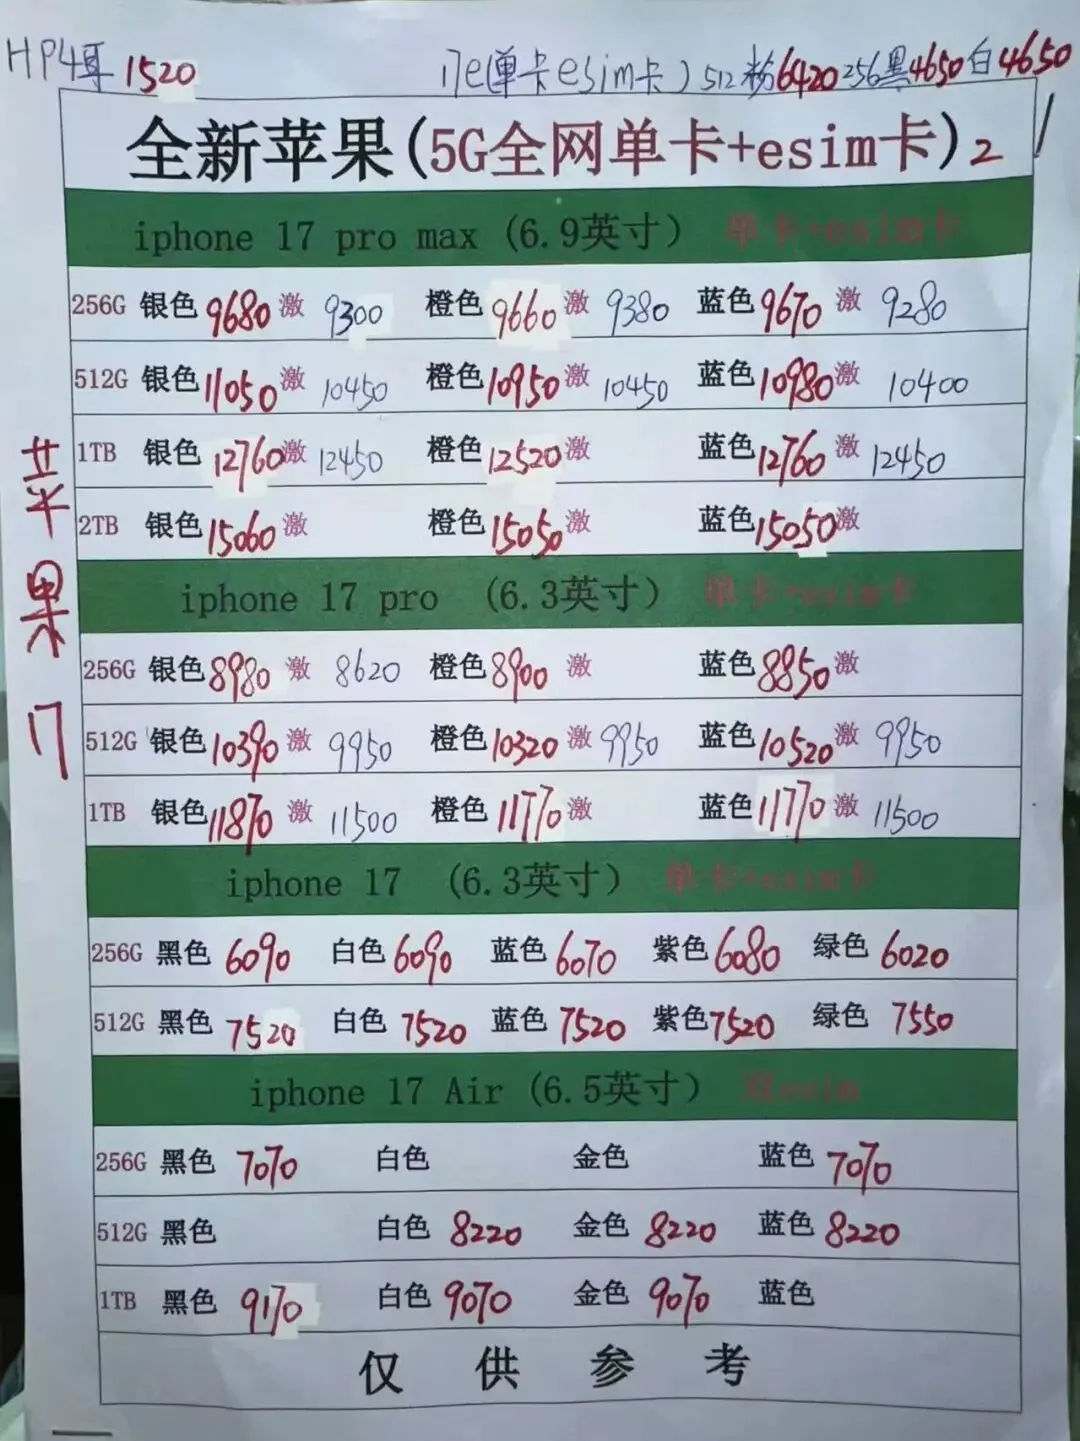 HP4耳 1520 17e(单卡esim卡)512粉6420 256黑4650白4650
全新苹果(5G全网单卡+esim卡)2
iphone 17 pro max (6.9英寸) 单卡+esim卡
256G 银色 9680 激 9300 橙色 9660 激 9380 蓝色 9670 激 9280
512G 银色 11050 激 10450 橙色 10950 激 10450 蓝色 10980 激 10400
1TB 银色 12760 激 12450 橙色 12520 激 蓝色 12760 激 12450
2TB 银色 15060 激 橙色 15050 激 蓝色 15050 激
iphone 17 pro (6.3英寸) 单卡+esim卡
256G 银色 8980 激 8620 橙色 8900 激 蓝色 8850 激
512G 银色 10390 激 9950 橙色 10320 激 9950 蓝色 10520 激 9950
1TB 银色 11870 激 11500 橙色 11770 激 蓝色 11770 激 11500
iphone 17 (6.3英寸) 单卡+esim卡
256G 黑色 6090 白色 6090 蓝色 6070 紫色 6080 绿色 6020
512G 黑色 7520 白色 7520 蓝色 7520 紫色 7520 绿色 7550
iphone 17 Air (6.5英寸) 双esim
256G 黑色 7070 白色 金色 蓝色 7070
512G 黑色 白色 8220 金色 8220 蓝色 8220
1TB 黑色 9170 白色 9070 金色 9070 蓝色
仅供参考
苹果17